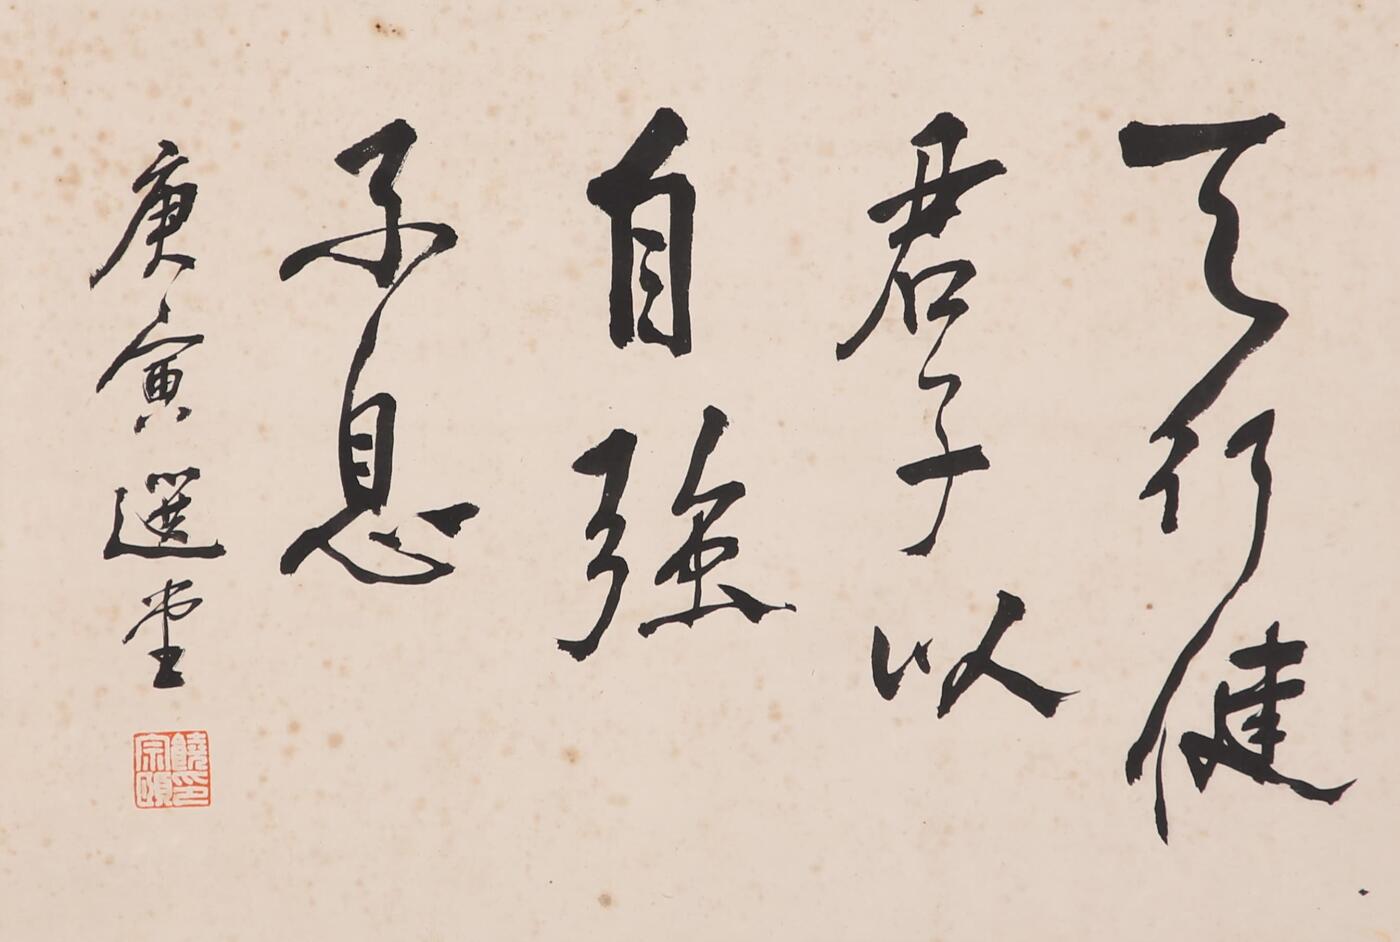 天行健
君子以
自強
不息
庚寅選堂
饒宗頤印